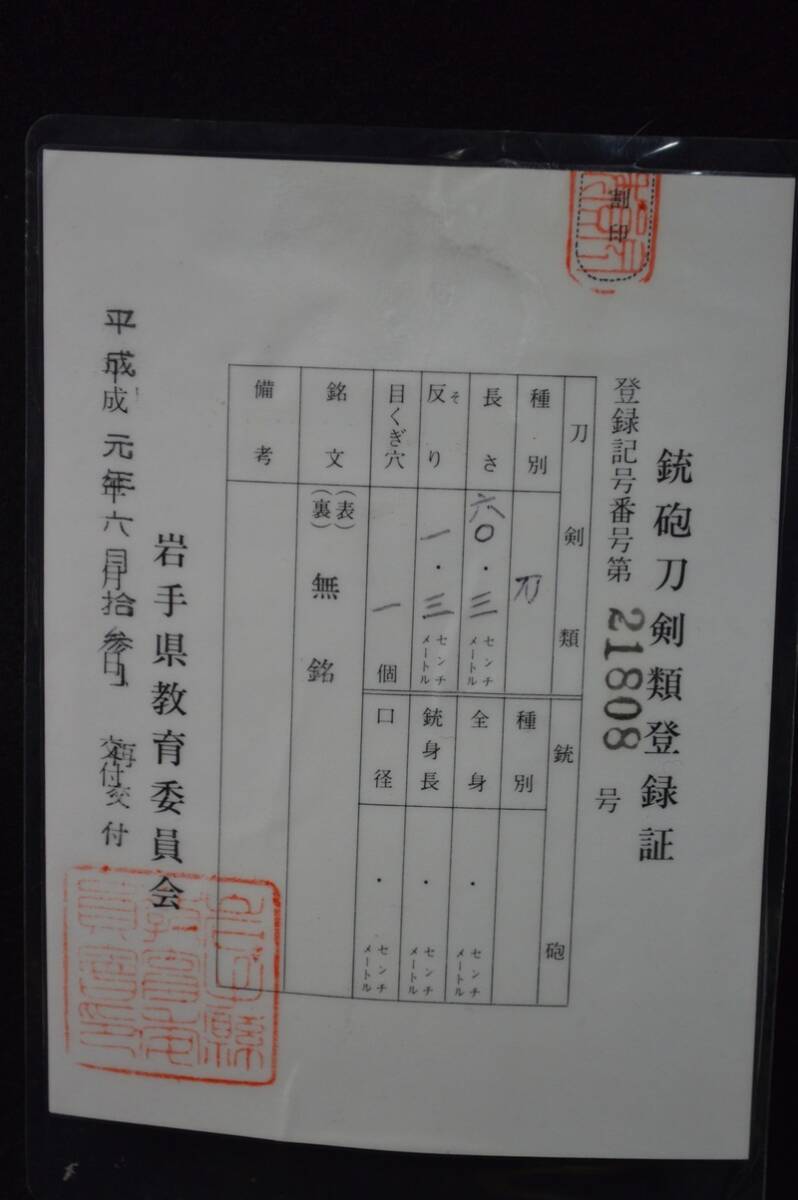 割印
銃砲刀剣類登録証
登録記号番号第 21808 号
刀剣類
種別 刀
長さ 六〇・三 センチメートル
反り そ 一・三 センチメートル
目くぎ穴 一 個
銘文 (表) (裏) 無銘
備考
銃砲
種別
全身 ・ センチメートル
銃身長 ・ センチメートル
口径 ・ センチメートル
岩手県教育委員会
平成元年六月拾参日 再交付